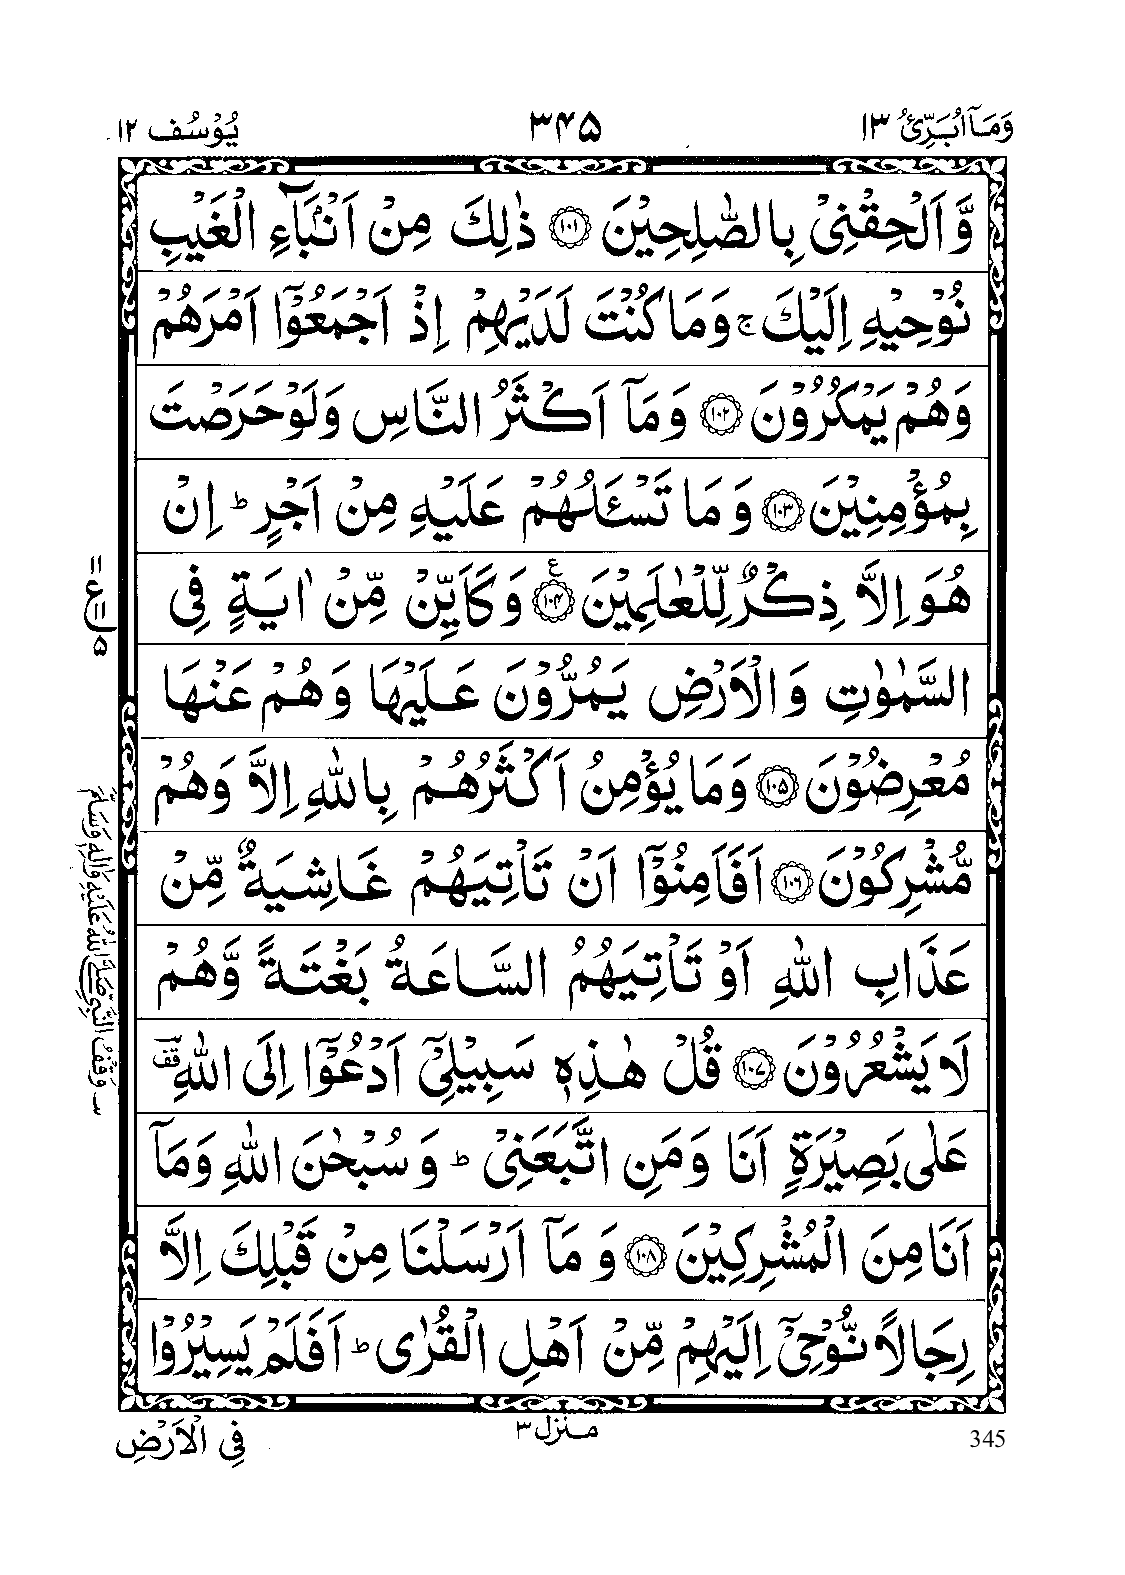 وَمَآ اُبَرِّئُ ١٣
٣٤٥
يُوْسُف ١٢
وَّ اَلْحِقْنِیْ بِالصّٰلِحِیْنَ ﴿۱۰۱﴾ ذٰلِكَ مِنْ اَنْۢبَآءِ الْغَیْبِ
نُوْحِیْهِ اِلَیْكَ ۚ وَمَا كُنْتَ لَدَیْهِمْ اِذْ اَجْمَعُوْۤا اَمْرَهُمْ
وَهُمْ یَمْكُرُوْنَ ﴿۱۰۲﴾ وَ مَاۤ اَكْثَرُ النَّاسِ وَلَوْ حَرَصْتَ
بِمُؤْمِنِیْنَ ﴿۱۰۳﴾ وَ مَا تَسْـَٔلُهُمْ عَلَیْهِ مِنْ اَجْرٍ ؕ اِنْ
هُوَ اِلَّا ذِكْرٌ لِّلْعٰلَمِیْنَ ﴿۱۰۴﴾ ع وَكَاَیِّنْ مِّنْ اٰیَةٍ فِی
السَّمٰوٰتِ وَ الْاَرْضِ یَمُرُّوْنَ عَلَیْهَا وَ هُمْ عَنْهَا
مُعْرِضُوْنَ ﴿۱۰۵﴾ وَمَا یُؤْمِنُ اَكْثَرُهُمْ بِاللّٰهِ اِلَّا وَهُمْ
مُّشْرِكُوْنَ ﴿۱۰۶﴾ اَفَاَمِنُوْۤا اَنْ تَاْتِیَهُمْ غَاشِیَةٌ مِّنْ
عَذَابِ اللّٰهِ اَوْ تَاْتِیَهُمُ السَّاعَةُ بَغْتَةً وَّهُمْ
لَا یَشْعُرُوْنَ ﴿۱۰۷﴾ قُلْ هٰذِهٖ سَبِیْلِیْۤ اَدْعُوْۤا اِلَی اللّٰهِ ؔقف
عَلٰی بَصِیْرَةٍ اَنَا وَمَنِ اتَّبَعَنِیْ ؕ وَ سُبْحٰنَ اللّٰهِ وَمَاۤ
اَنَا مِنَ الْمُشْرِكِیْنَ ﴿۱۰۸﴾ وَ مَاۤ اَرْسَلْنَا مِنْ قَبْلِكَ اِلَّا
رِجَالًا نُّوْحِیْۤ اِلَیْهِمْ مِّنْ اَهْلِ الْقُرٰی ؕ اَفَلَمْ یَسِیْرُوْا
ع
۵
وَقْفُ النَّبِیِّ صَلَّی اللّٰهُ عَلَیْهِ وَاٰلِهٖ وَسَلَّمَ
345
منزل ٣
فِی الْاَرْضِ